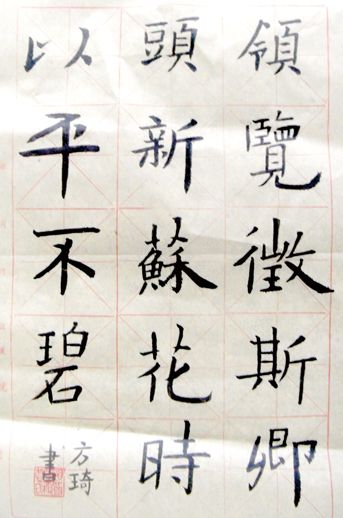 領覽徵斯卿
頭新蘇花時
以平不碧
方琦
書